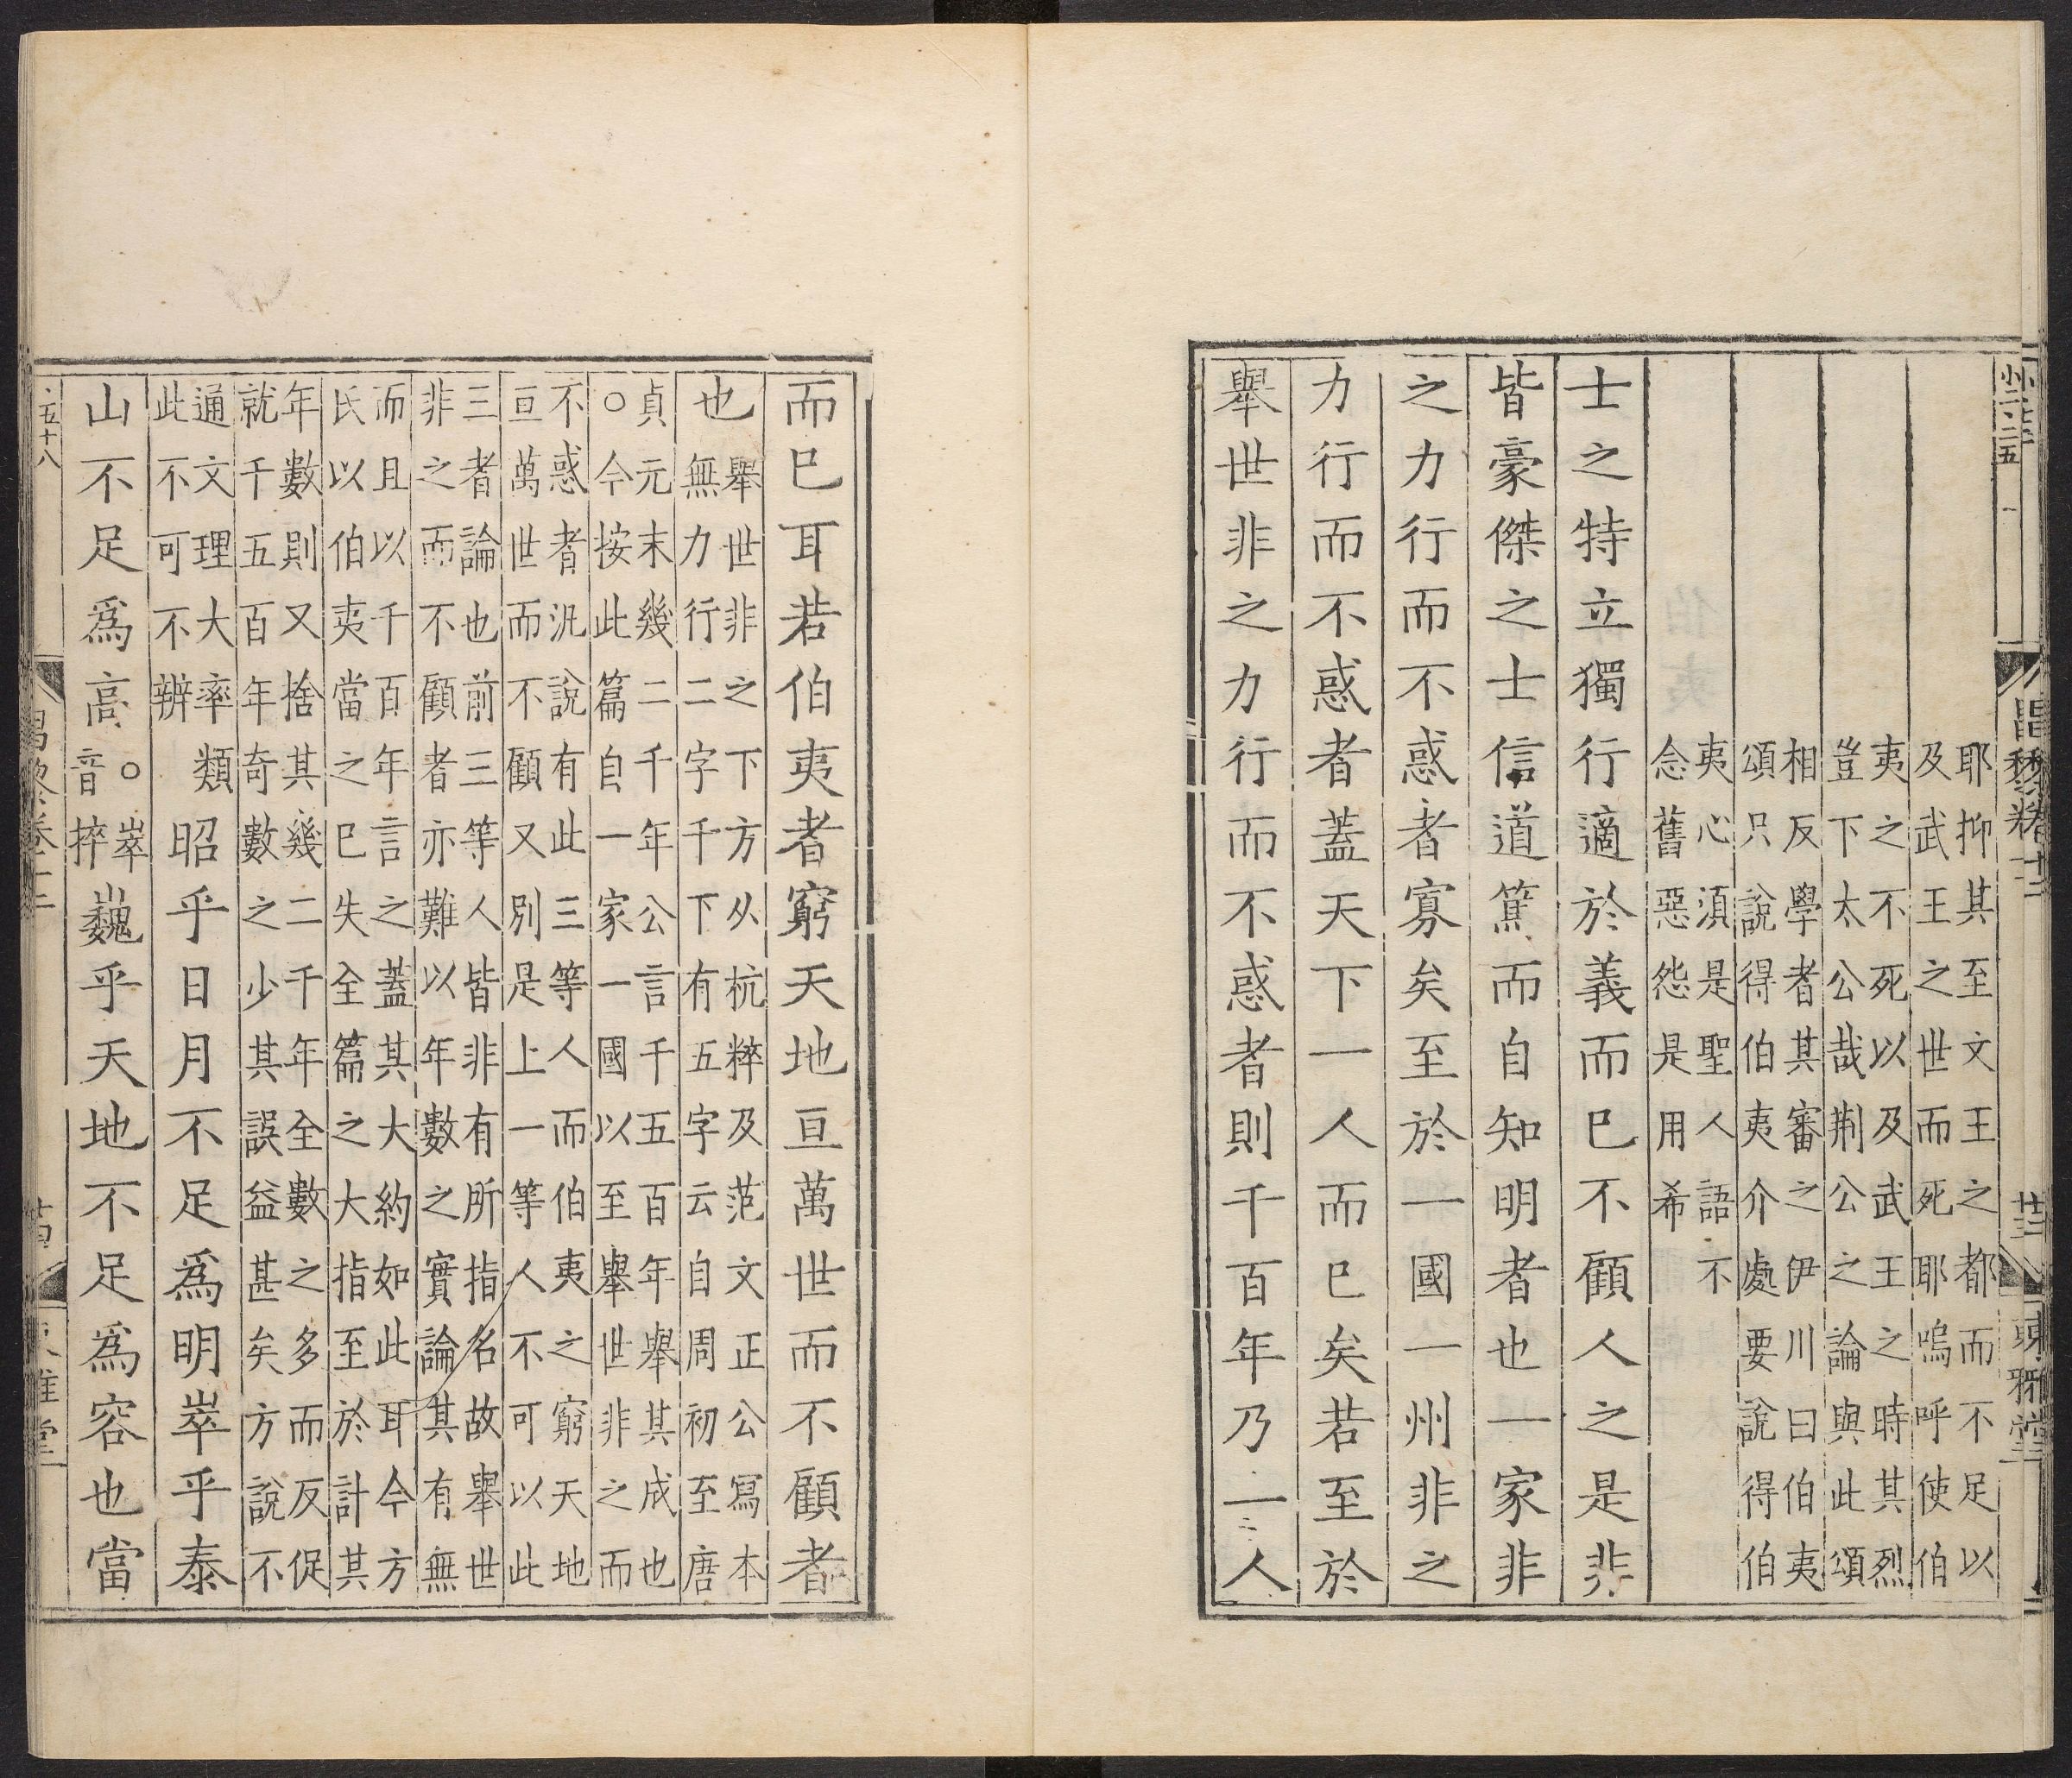 耶抑其至文王之都而不足以
及武王之世而死耶嗚呼使伯
夷之不死以及武王之時其烈
豈下太公哉荆公之論與此頌
相反學者其審之伊川曰伯夷
頌只說得伯夷介處要說得伯
夷心須是聖人語不
念舊惡怨是用希
士之特立獨行適於義而已不顧人之是非
皆豪傑之士信道篤而自知明者也一家非
之力行而不惑者寡矣至於一國一州非之
力行而不惑者蓋天下一人而已矣若至於
舉世非之力行而不惑者則千百年乃一人
而已耳若伯夷者窮天地亘萬世而不顧者
也
舉世非之下方从杭粹及范文正公寫本
無力行二字千下有五字云自周初至唐
貞元末幾二千年公言千五百年舉其成也
○今按此篇自一家一國以至舉世非之而
不惑者汎說有此三等人而伯夷之窮天地
亘萬世而不顧又別是上一等人不可以此
三者論也前三等人皆非有所指名故舉世
非之而不顧者亦難以年數之實論其有無
而且以千百年言之蓋其大約如此耳今方
氏以伯夷當之已失全篇之大指至於計其
年數則又捨其幾二千年全數之多而反促
就千五百年奇數之少其誤益甚矣方說不
通文理大率類
此不可不辨
昭乎日月不足爲明崒乎泰
山不足爲高
○崒
音捽
巍乎天地不足爲容也當
昌黎卷十二
廿三
東雅堂
五十八
昌黎卷十二
廿四
東雅堂